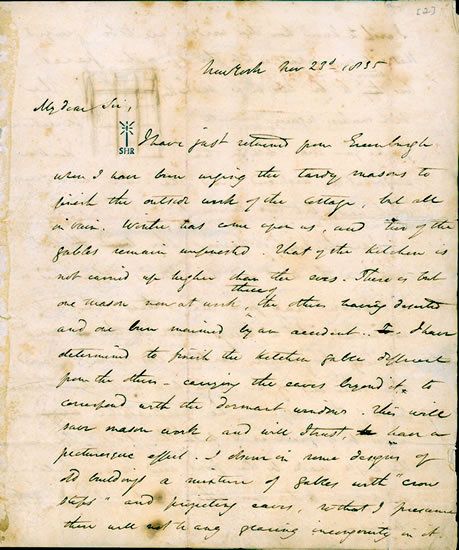 [2]
New York Nov 23d 1835
My dear Sir,
SHR
I have just returned from Greenburgh
where I have been urging the tardy masons to
finish the outside work of the cottage, but all
in vain. Winter has come upon us, and two of the
gables remain unfinished. That of the kitchen is
not carried up higher than the eves. There is but
one mason now at work, three of the others having deserted
and one been maimed by an accident.. I have
determined to finish the kitchen gable different
from the others - carrying the eaves beyond it, to
correspond with the dormant windows. This will
save mason work, and will I trust, have a
picturesque effect. I observe in some designs of
old buildings a mixture of gables with "crow
steps" and projecting eaves, so that I presume
there will not be any glaring incongruity in it.